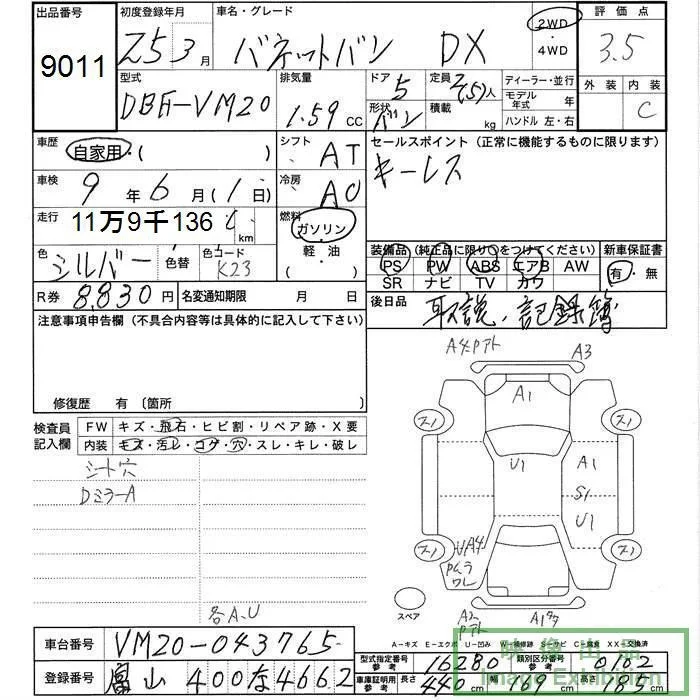 出品番号
9011
初度登録年月
25 3月
車名・グレード
バネットバン DX
2WD
4WD
評価点
3.5
外装 内装
C
型式
DBF-VM20
排気量
1.59 CC
ドア
5
形状
バン
定員
2(5)人
積載
kg
ディーラー・並行
モデル年式 年
ハンドル 左・右
車歴
自家用・( )
シフト
AT
セールスポイント (正常に機能するものに限ります)
キーレス
車検
9年 6月(1日)
冷房
AC
走行
11万9千136
km
燃料
ガソリン
軽・油
色
シルバー
色替
色コード
K23
装備品 (純正品に限り○をつけてください)
PS PW ABS エアB AW
SR ナビ TV カワ
新車保証書
有・無
R券
8,830円
名変通知期限 月 日
後日品
取説、記録簿
注意事項申告欄 (不具合内容等は具体的に記入して下さい)
修復歴 有 (箇所
検査員記入欄
FW キズ・飛石・ヒビ割・リペア跡・X要
内装 キズ・汚レ・コゲ・穴・スレ・キレ・破レ
シート穴
DミラーA
各A、U
A4Pアト
A3
A1
U1
A1
S1
U1
スペア
A1
A-キズ E-エクボ U-凹み W-補修跡 S-サビ C-腐食 XX-交換済
車台番号
VM20-043765
登録番号
富山 400 な 4662
型式指定番号
参考
16280
類別区分番号
参考
0102
車庫証明用
参考
長さ 440 cm
幅 169 cm
高さ 185 cm
映像出品
Image Exhibition